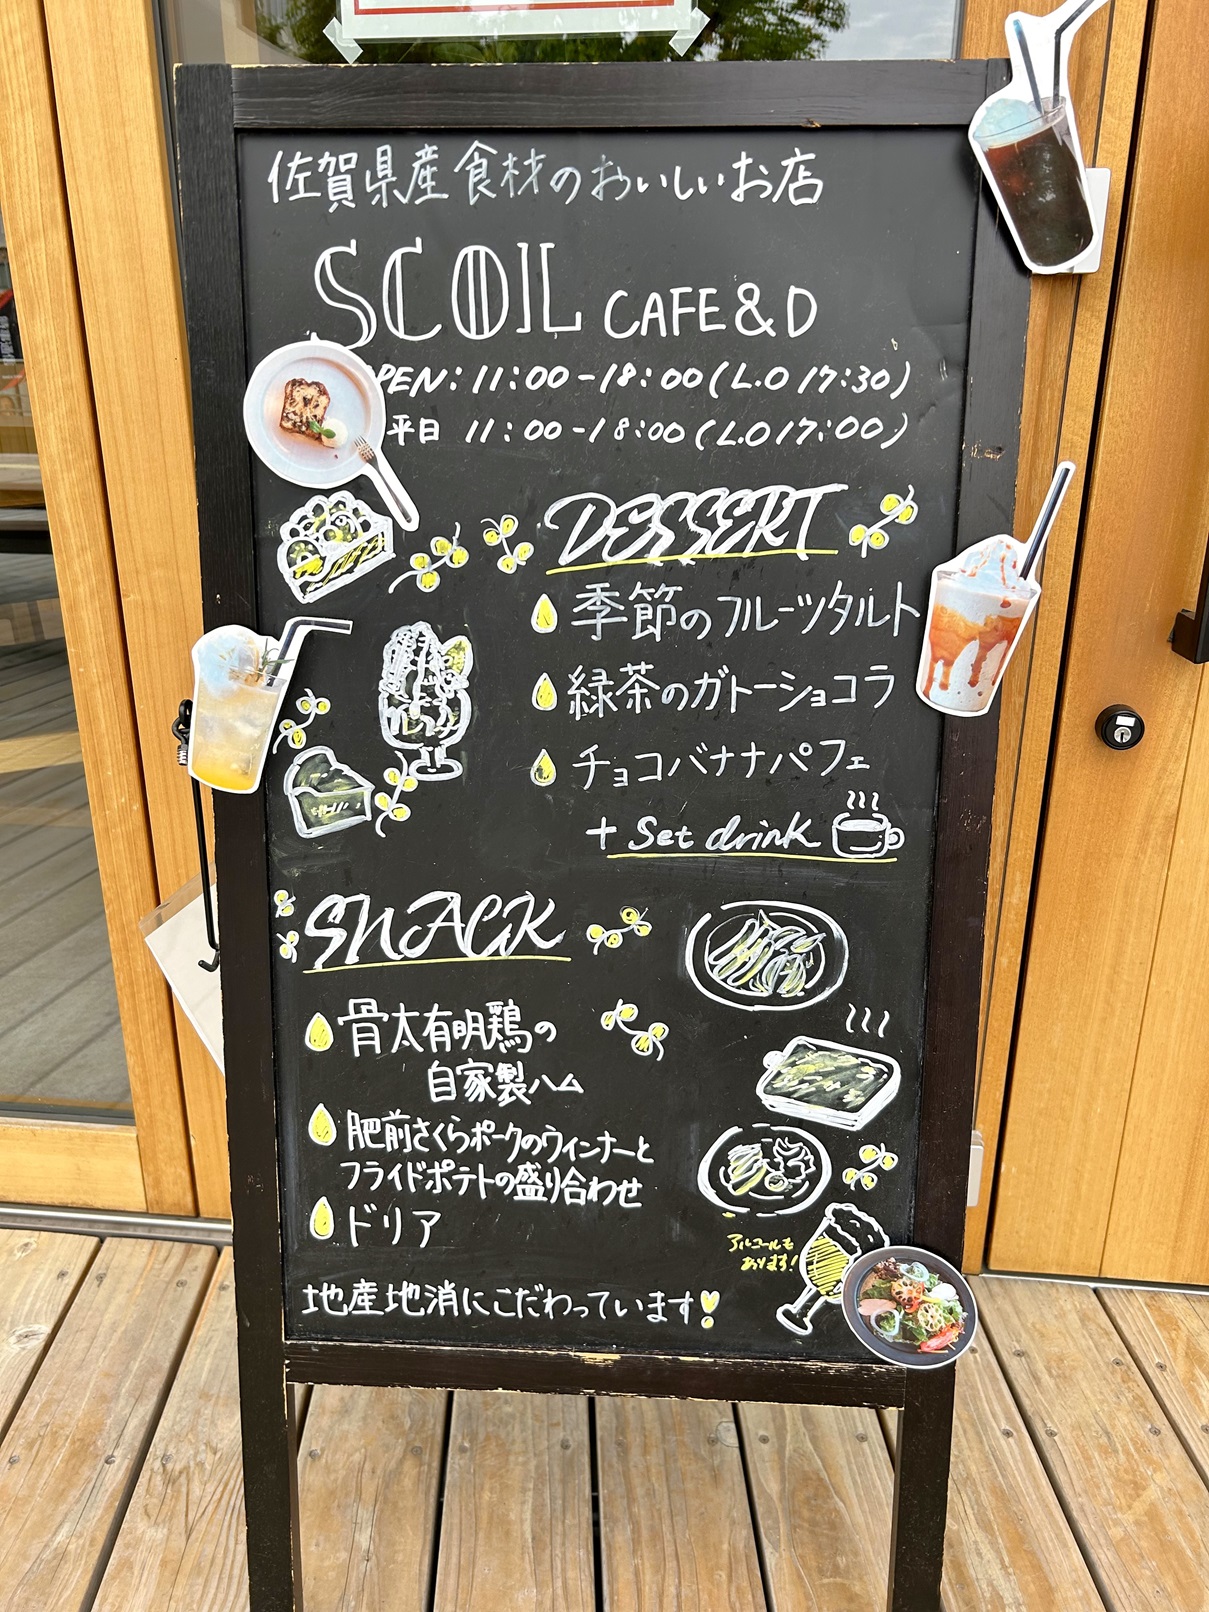 佐賀県産食材のおいしいお店
SCOIL CAFE & D
OPEN: 11:00-18:00 (L.O 17:30)
平日 11:00-18:00 (L.O 17:00)
DESSERT
季節のフルーツタルト
緑茶のガトーショコラ
チョコバナナパフェ
+ Set drink
SNACK
骨太有明鶏の
自家製ハム
肥前さくらポークのウィンナーと
フライドポテトの盛り合わせ
ドリア
アルコールも
あります!
地産地消にこだわっています!